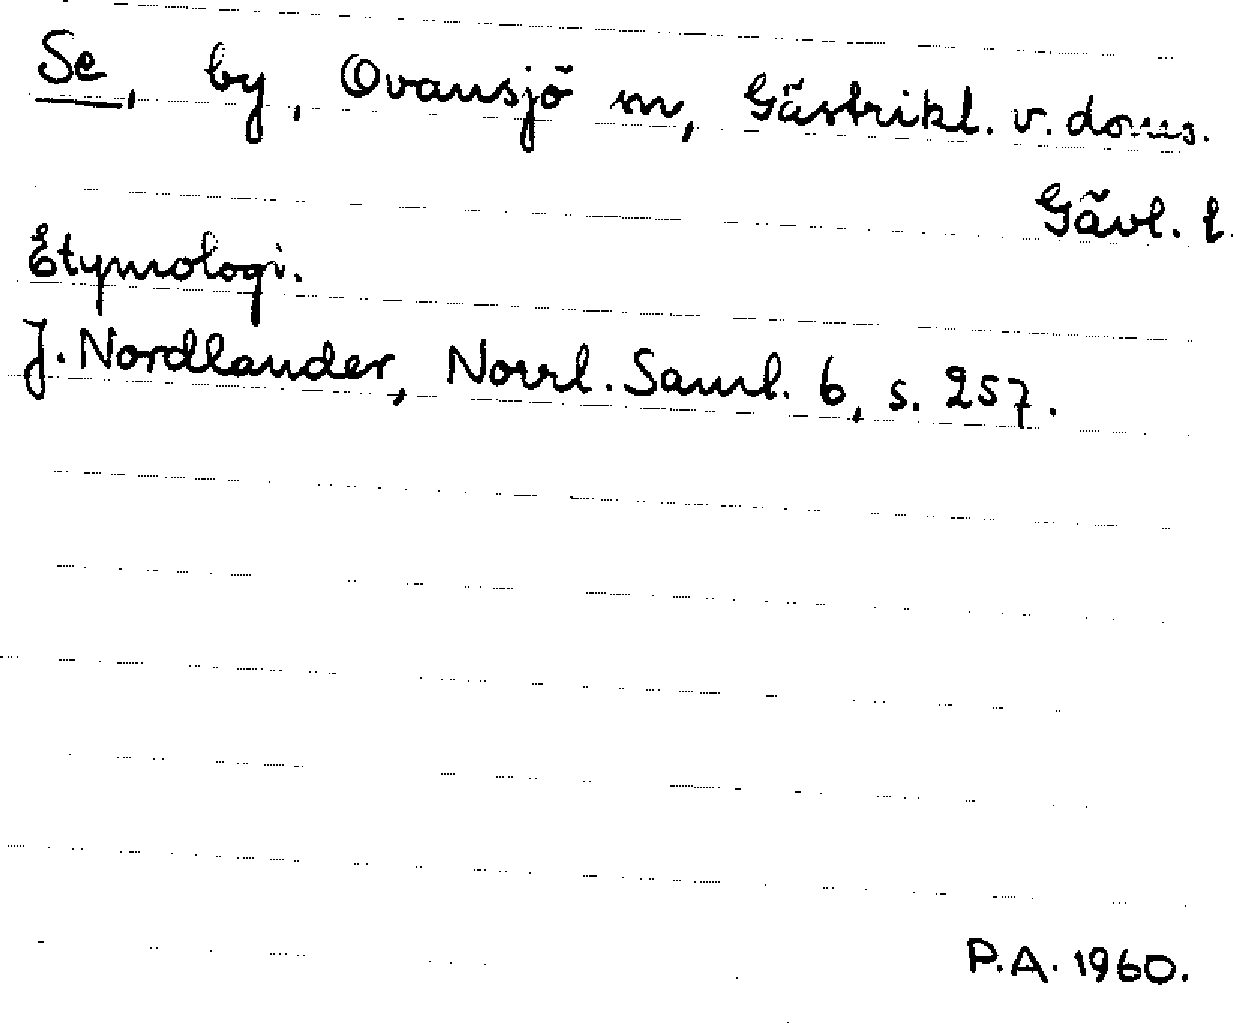 Se, by, Ovansjö sn, Gästrikl. v. doms.
Gävl. l.
Etymologi.
J. Nordlander, Norrl. Saml. 6, s. 257.
P.A. 1960.